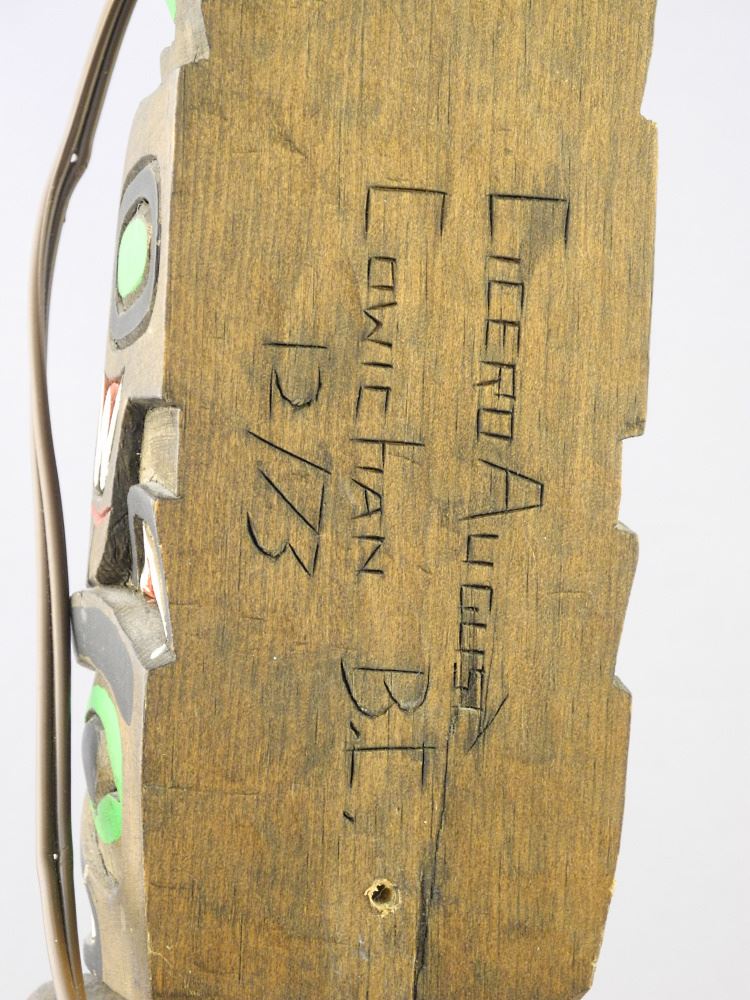 CICERO AUGUST
COWICHAN B.C.
12/73